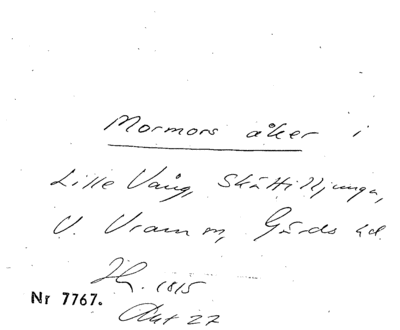 Mormors åker i
Lille Vång, Skättilljunga,
V. Vram sn, Gärds hd.
1815
Nr 7767.
Akt 27